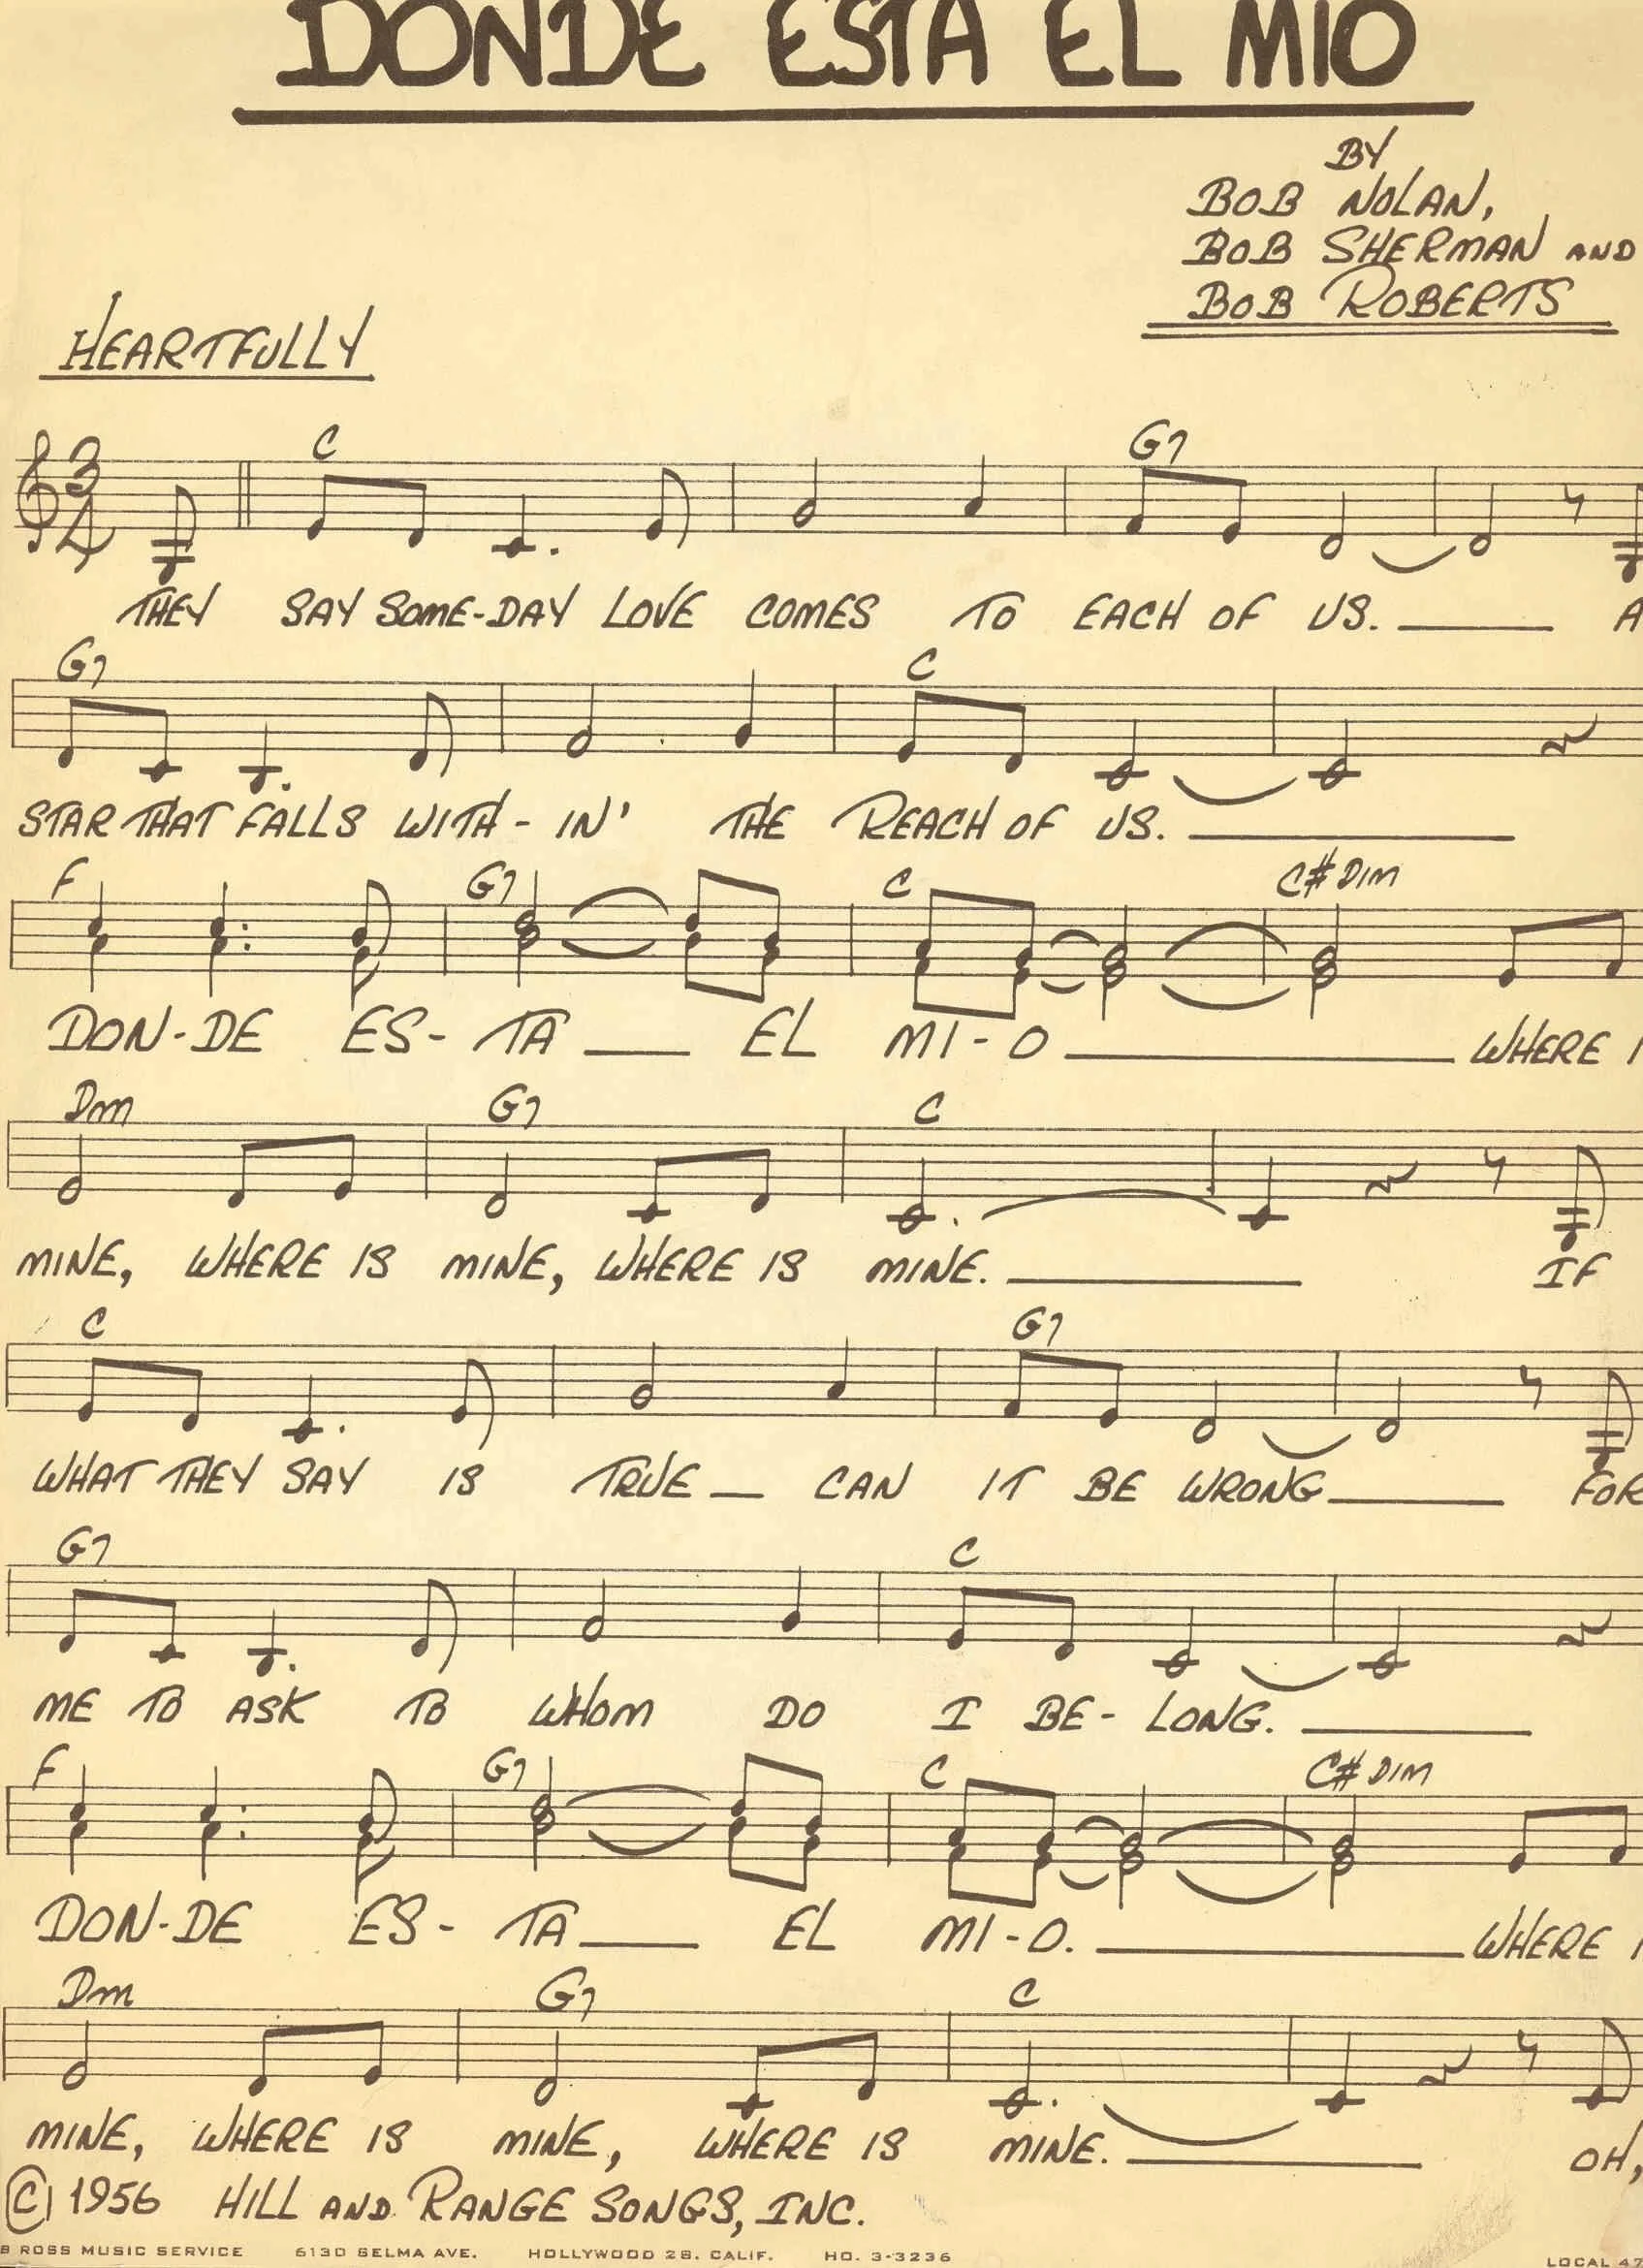 DONDE ESTA EL MIO
BY
BOB NOLAN,
BOB SHERMAN AND
BOB ROBERTS
HEARTFULLY
C G7
3
4
THEY SAY SOME-DAY LOVE COMES TO EACH OF US. A
G7 C
STAR THAT FALLS WITH-IN' THE REACH OF US.
F G7 C C# DIM
DON-DE ES-TA EL MI-O WHERE I
Dm G7 C
MINE, WHERE IS MINE, WHERE IS MINE. IF
C G7
WHAT THEY SAY IS TRUE CAN IT BE WRONG FOR
G7 C
ME TO ASK TO WHOM DO I BE-LONG.
F G7 C C# DIM
DON-DE ES-TA EL MI-O. WHERE I
Dm G7 C
MINE, WHERE IS MINE, WHERE IS MINE. OH,
© 1956 HILL AND RANGE SONGS, INC.
B ROSS MUSIC SERVICE 6130 SELMA AVE. HOLLYWOOD 28, CALIF. HO. 3-3236 LOCAL 47